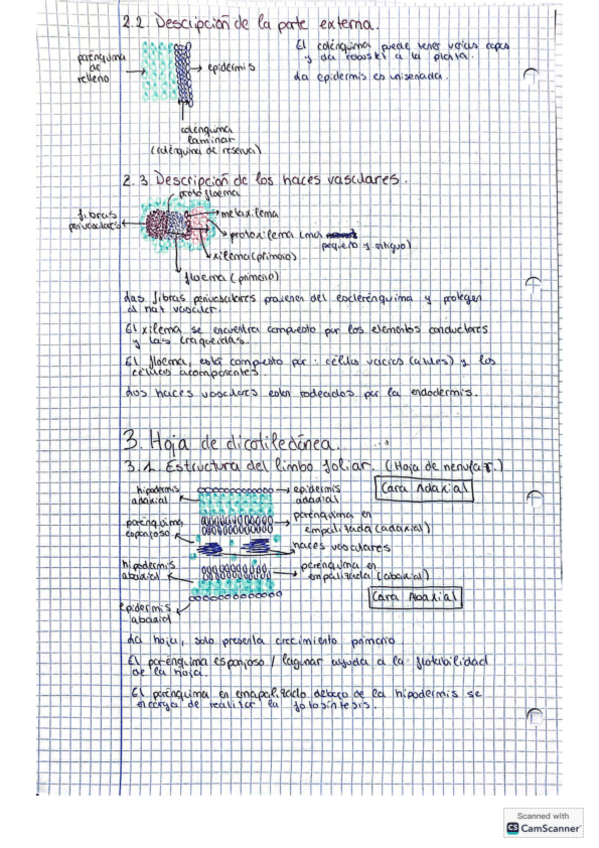 2.2. Descripción de la parte externa.
parénquima
de
relleno
epidermis
colénquima
laminar
(colénquima de reserva)
El colénquima puede tener varias capas
y da robustez a la planta.
La epidermis es uniseriada.
2.3. Descripción de los haces vasculares.
protofloema
fibras
perivasculares
metaxilema
protoxilema (más
pequeño y antiguo)
xilema (primario)
floema (primario)
Las fibras perivasculares provienen del esclerénquima y protegen
al haz vascular.
El xilema se encuentra compuesto por los elementos conductores
y las traqueidas.
El floema, está compuesto por: células vacías (tubos) y las
células acompañantes
Los haces vasculares están rodeados por la endodermis.
3. Hoja de dicotiledónea.
3.1. Estructura del limbo foliar. (Hoja de nenúfar.)
hipodermis
adaxial
epidermis
adaxial
Cara Adaxial
parénquima
esponjoso
parénquima en
empalizada (adaxial)
haces vasculares
hipodermis
abaxial
parénquima en
empalizada (abaxial)
Cara Abaxial
epidermis
abaxial
La hoja, solo presenta crecimiento primario
El parénquima esponjoso / lagunar ayuda a la flotabilidad
de la hoja.
El parénquima en empalizada debajo de la hipodermis se
encarga de realizar la fotosíntesis.
Scanned with
CS CamScanner